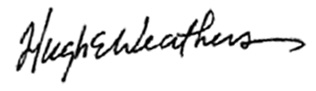 Hugh E Weathers